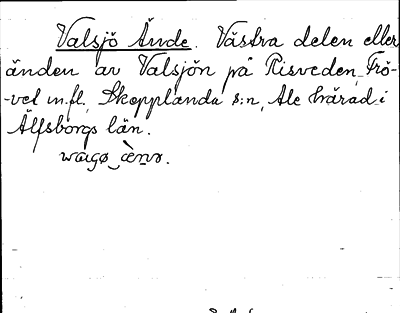 Valsjö Ände. Västra delen eller
änden av Valsjön på Risveden, Frö-
-vet m.fl., Skepplanda s:n, Ale härad i
Älfsborgs län.